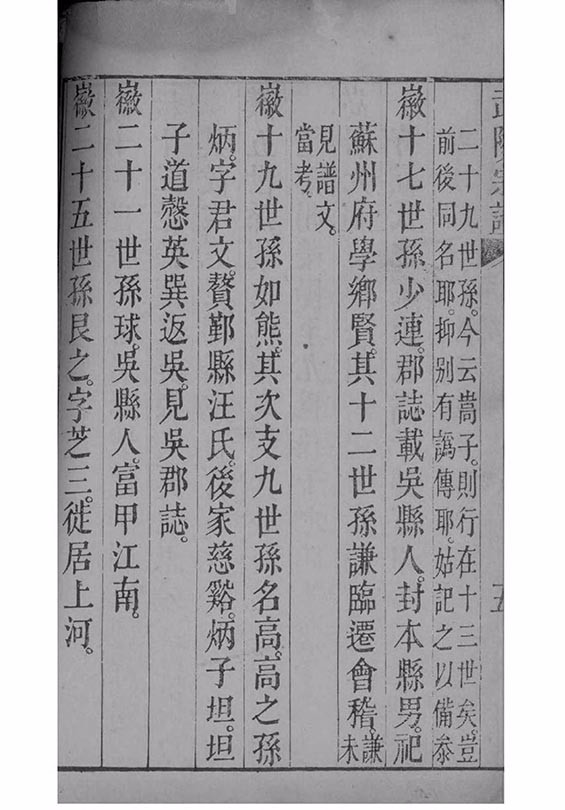 武陵宗譜
五
二十九世孫。今云嵩子。則行在十三世矣。豈
前後同名耶。抑别有譌傳耶。姑記之以備叅
徽十七世孫少連。郡誌載吳縣人。封本縣男。祀
蘇州府學鄉賢。其十二世孫謙臨遷會稽。謙未
見譜文。
當考。
徽十九世孫如熊。其次支九世孫名高。高之孫
炳。字君文。贅鄞縣汪氏。後家慈谿。炳子坦。坦
子道慤英巽返吳。見吳郡誌。
徽二十一世孫球。吳縣人。富甲江南。
徽二十五世孫艮之。字芝三。徙居上河。